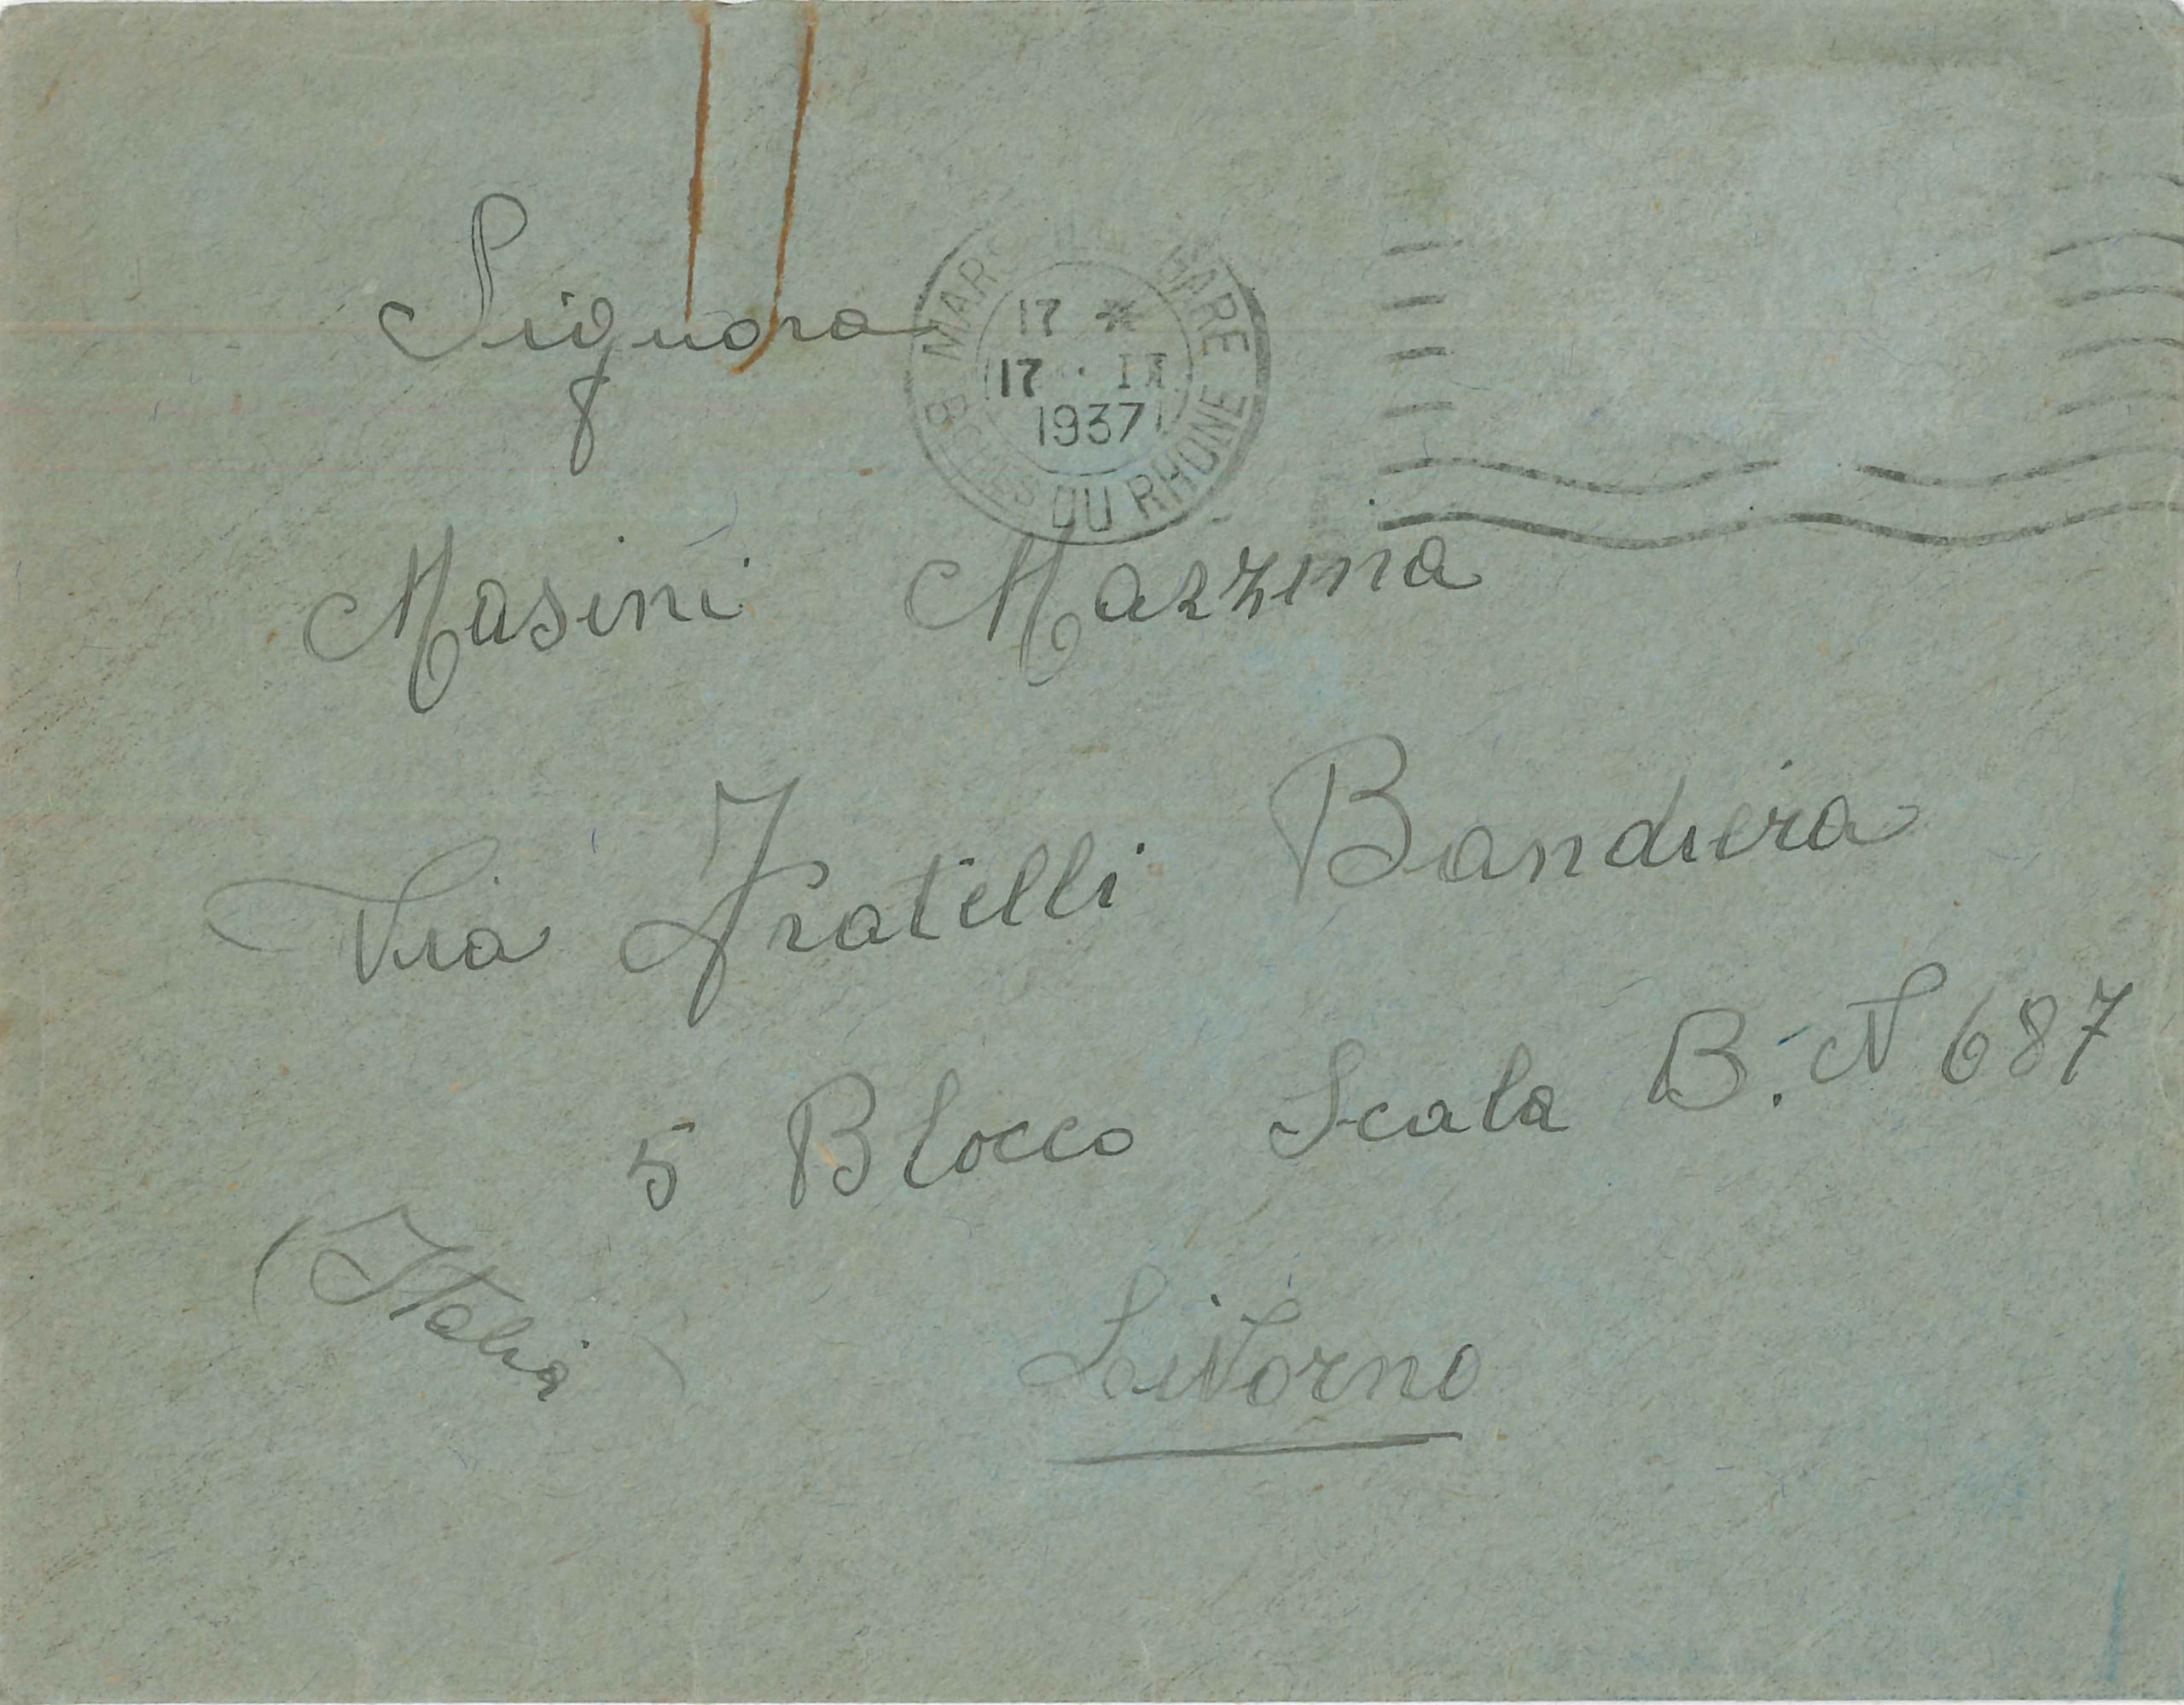 Signora
MARSEILLE GARE
17 *
17 · IX
1937
BCHES DU RHONE
Masini Mazzina
Via Fratelli Bandiera
5 Blocco Scala B. N 687
(Italia)
Livorno